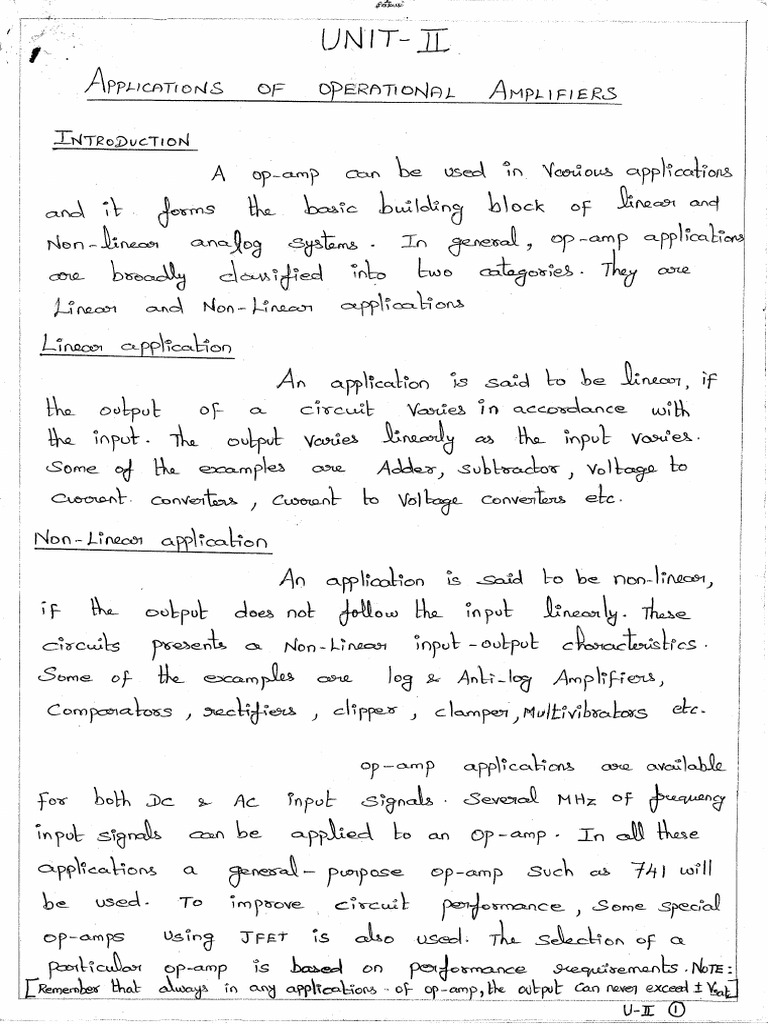 UNIT-II
APPLICATIONS OF OPERATIONAL AMPLIFIERS
INTRODUCTION
A op-amp can be used in various applications
and it forms the basic building block of linear and
Non-linear analog systems. In general, op-amp applications
are broadly classified into two categories. They are
Linear and Non-Linear applications
Linear application
An application is said to be linear, if
the output of a circuit varies in accordance with
the input. The output varies linearly as the input varies.
Some of the examples are Adder, subtractor, voltage to
current converters, current to voltage converters etc.
Non-Linear application
An application is said to be non-linear,
if the output does not follow the input linearly. These
circuits presents a Non-Linear input-output characteristics.
Some of the examples are log & Anti-log Amplifiers,
Comparators, rectifiers, clipper, clamper, Multivibrators etc.
op-amp applications are available
for both DC & AC input signals. Several MHz of frequency
input signals can be applied to an op-amp. In all these
applications a general-purpose op-amp such as 741 will
be used. To improve circuit performance, some special
op-amps using JFET is also used. The selection of a
particular op-amp is based on performance requirements. NOTE:
[Remember that always in any applications of op-amp, the output can never exceed ± Vsat]
U-II 1